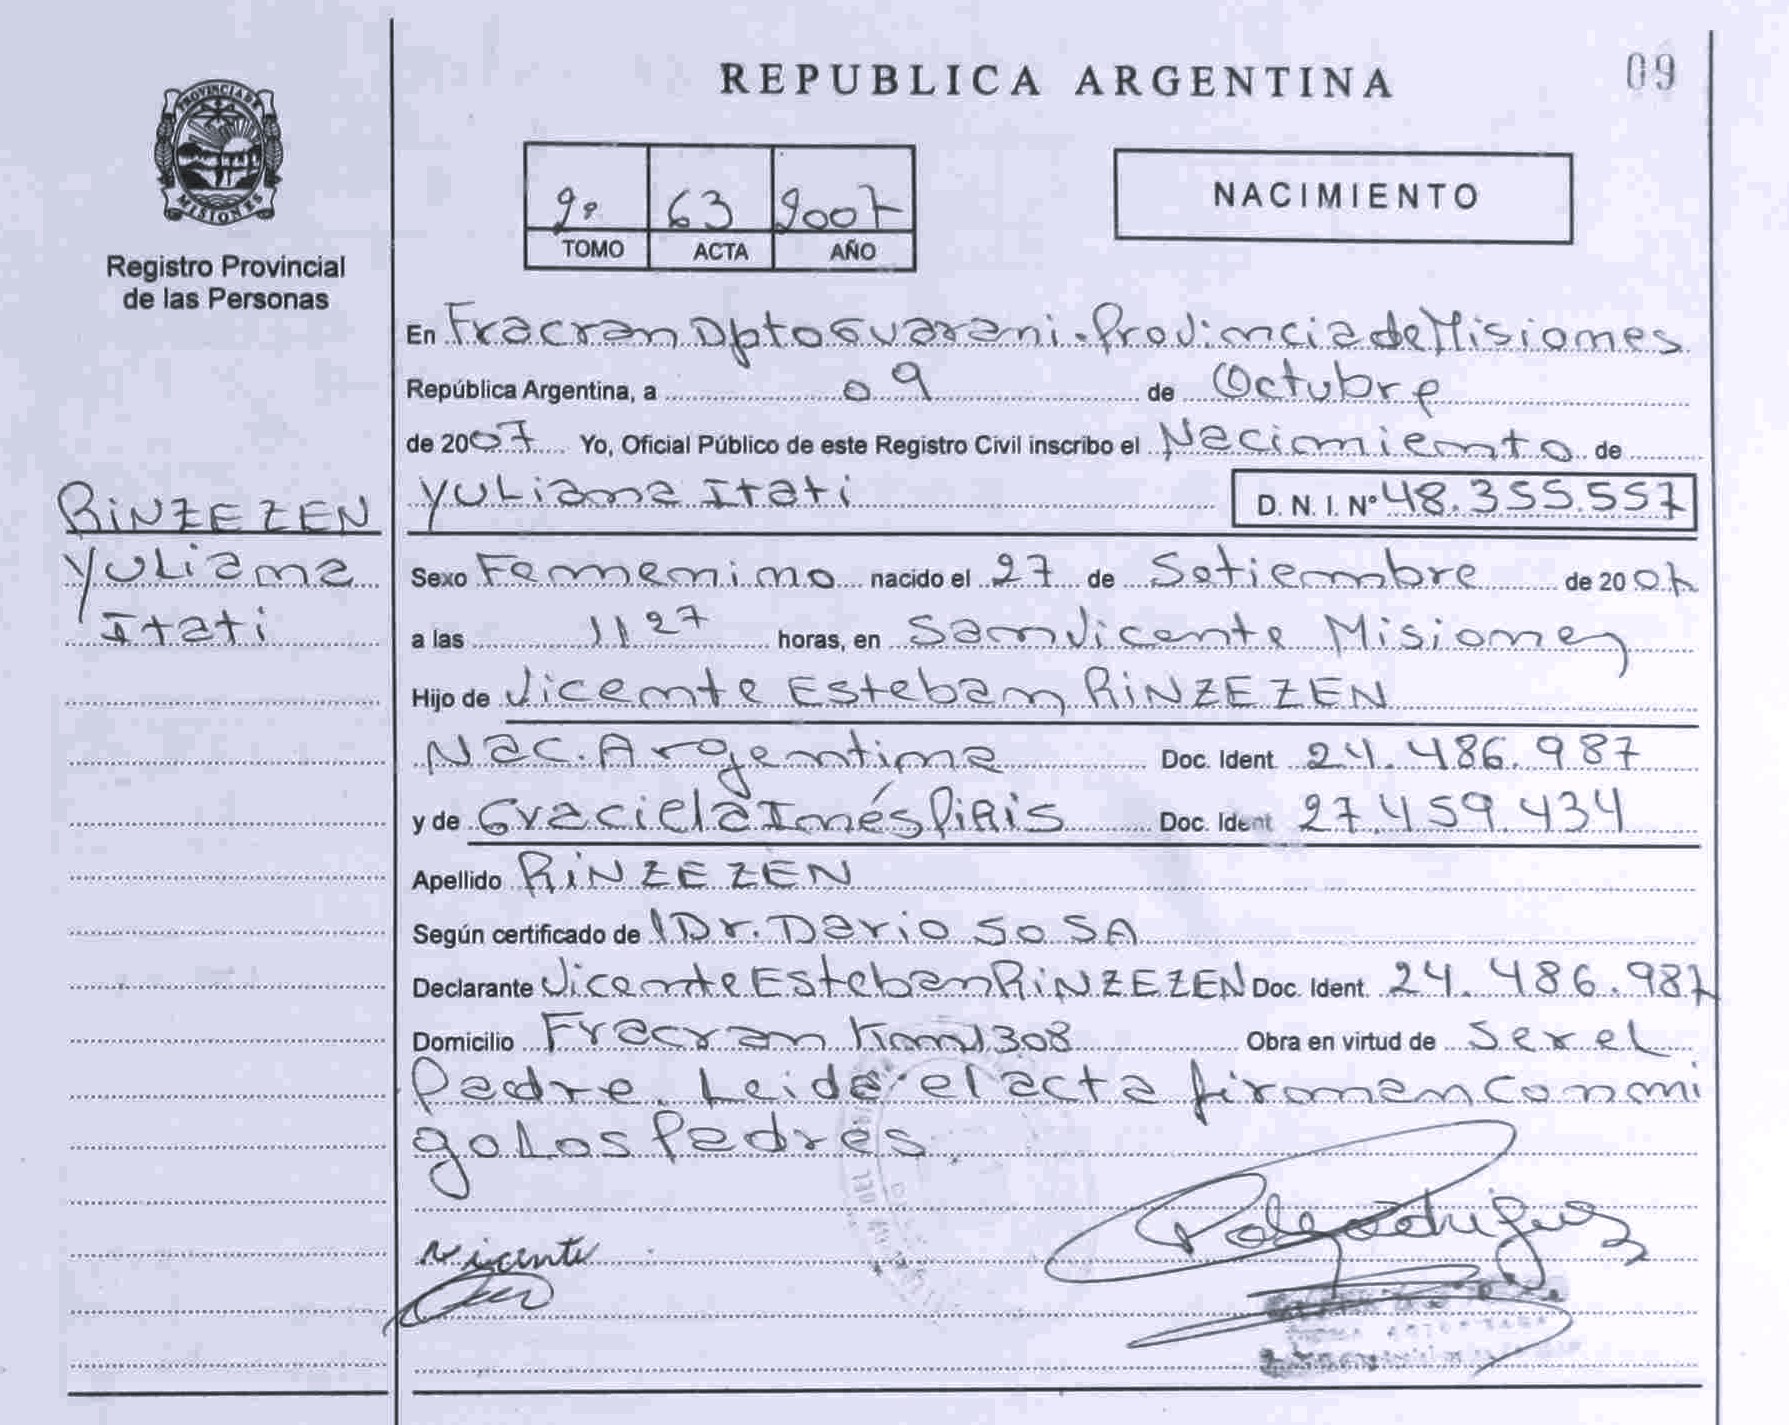 REPUBLICA ARGENTINA
09
PROVINCIA DE
MISIONES
Registro Provincial
de las Personas
2º 63 2007
TOMO ACTA AÑO
NACIMIENTO
En Fracran Dpto Guarani. Provincia de Misiones
República Argentina, a 09 de Octubre
de 2007 Yo, Oficial Público de este Registro Civil inscribo el Nacimiento de
Yuliana Itati D. N. I. Nº 48.355.557
RINZEZEN
Yuliana
Itati
Sexo Femenino nacido el 27 de Setiembre de 2007
a las 11 27 horas, en San Vicente Misiones
Hijo de Vicente Esteban RINZEZEN
Nac. Argentina Doc. Ident. 24.486.987
y de Graciela Inés PIRIS Doc. Ident 27.459.434
Apellido RINZEZEN
Según certificado de Dr. Dario SOSA
Declarante Vicente Esteban RINZEZEN Doc. Ident. 24.486.987
Domicilio Fracran Km 1308 Obra en virtud de Ser el
Padre. Leida el acta firman conmi
go Los Padres.
Vicente